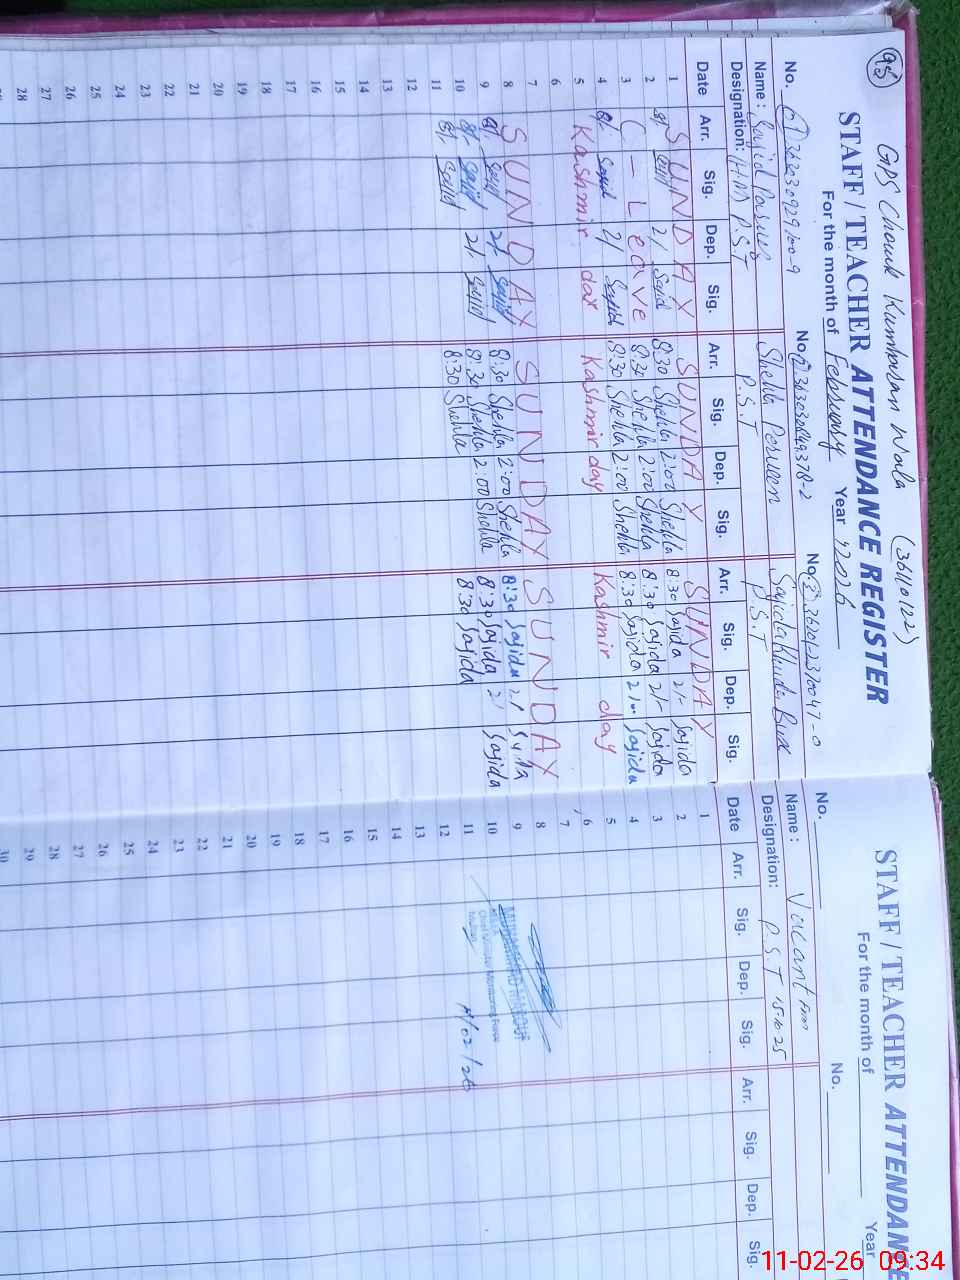 95
GPS Chowk Kumharan Wala (36110122)
STAFF / TEACHER ATTENDANCE REGISTER
For the month of February Year 2026
No. 1
Name : Sajid
Designation: (H.M) P.S.T
No. 2
Shehla Perveen
P.S.T
No. 3
Sajida Khuda Bux
P.S.T
Date Arr. Sig. Dep. Sig. Arr. Sig. Dep. Sig. Arr. Sig. Dep. Sig.
1 SUNDAY SUNDAY SUNDAY
2 8/ Sajid 2/ Sajid 8:30 Shehla 2:00 Shehla 8:30 Sajida 2/- Sajida
3 C - Leave 8:30 Shehla 2:00 Shehla 8:30 Sajida 2/- Sajida
4 8/ Sajid 2/ Sajid 8:30 Shehla 2:00 Shehla 8:30 Sajida 2/- Sajida
5 Kashmir day Kashmir day Kashmir day
6
7
8 SUNDAY SUNDAY SUNDAY
9 8/ Sajid 2/ Sajid 8:30 Shehla 2:00 Shehla 8:30 Sajida 2/ Sajida
10 8/ Sajid 2/ Sajid 8:30 Shehla 2:00 Shehla 8:30 Sajida 2/ Sajida
11 8/ Sajid 8:30 Shehla 8:30 Sajida
12
13
14
15
16
17
18
19
20
21
22
23
24
25
26
27
28
STAFF / TEACHER ATTENDANCE
For the month of Year
No. No.
Name : Vacant from
Designation: P.S.T 15.10.25
Date Arr. Sig. Dep. Sig. Arr. Sig. Dep. Sig.
1
2
3
4
5
6
7
8
9
10
11
12
13
14
15
16
17
18
19
20
21
22
23
24
25
26
27
28
29
30
MUHAMMAD
Chief Minister Monitoring Force
Multan
11/02/26
11-02-26 09:34